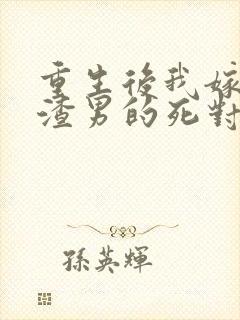 重生後我嫁
渣男的死對
孫英輝